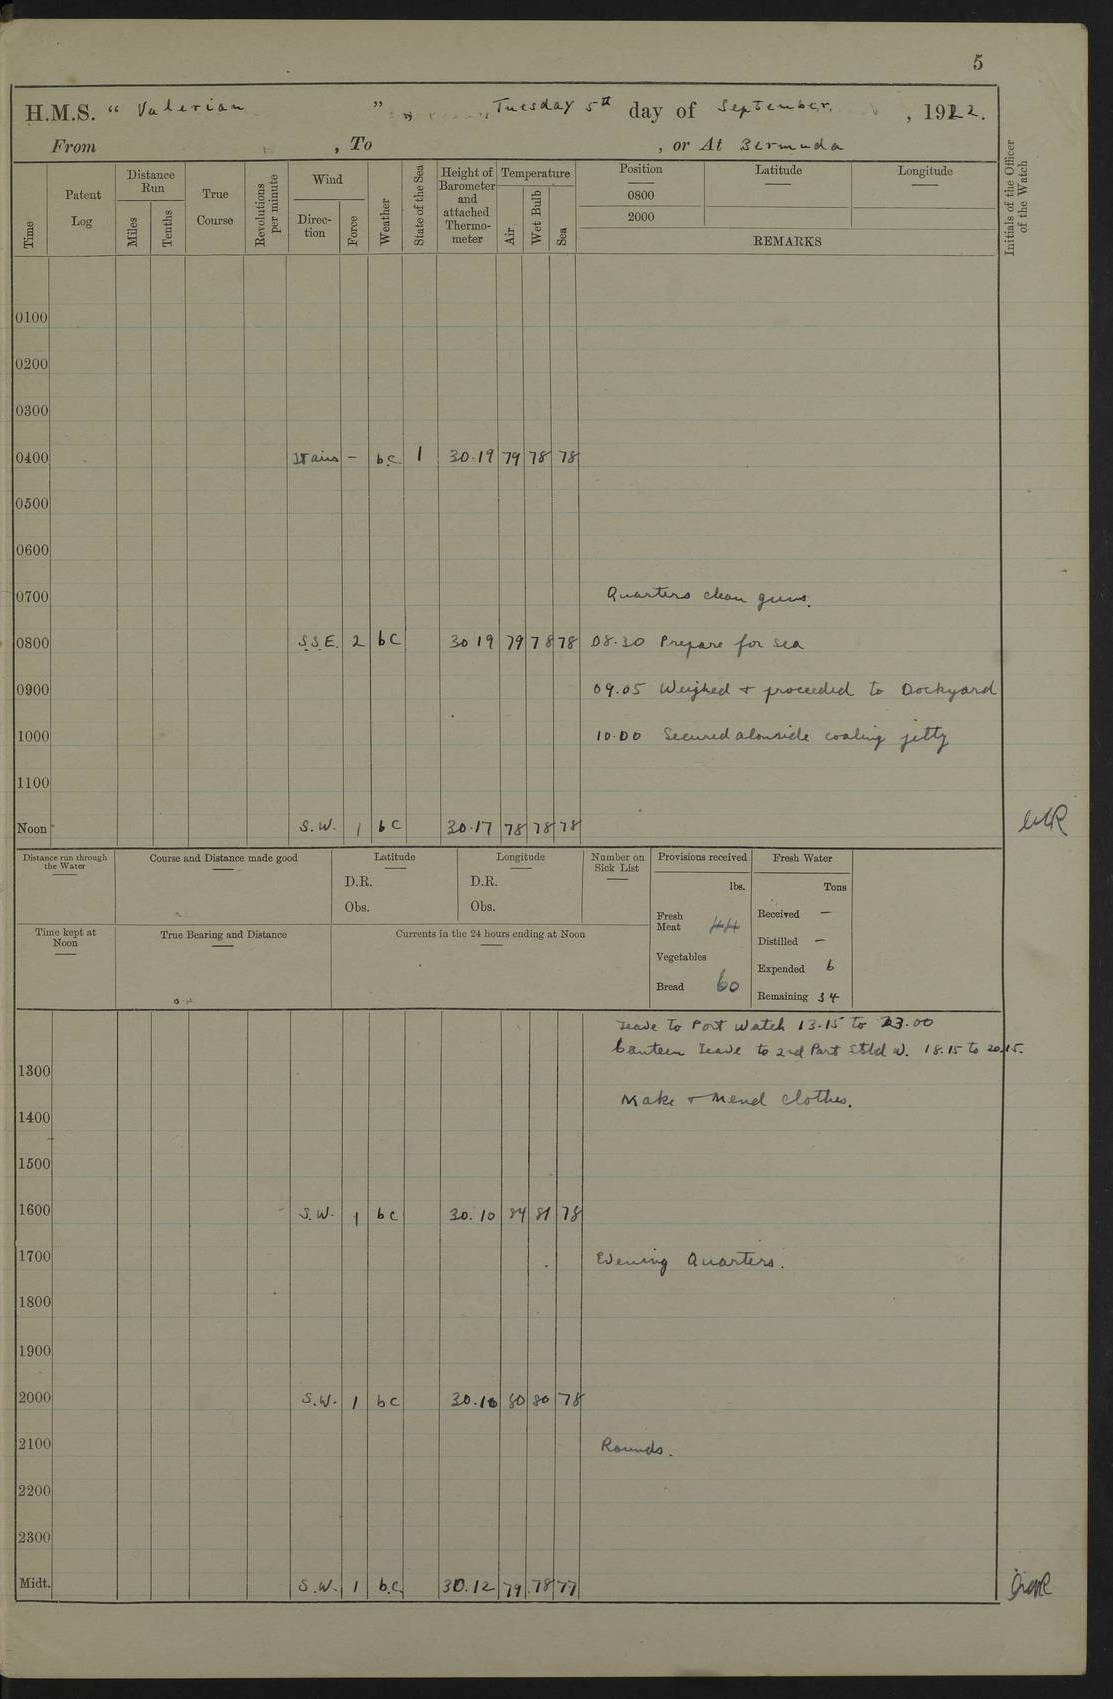 5
H.M.S. “ Valerian ” Tuesday 5th day of September, 1922.
From , To , or At Bermuda
Time
Patent Log
Distance Run
Miles
Tenths
True Course
Revolutions per minute
Wind
Direc-tion
Force
Weather
State of the Sea
Height of Barometer and attached Thermo-meter
Temperature
Air
Wet Bulb
Sea
Position
0800
2000
Latitude
Longitude
REMARKS
Initials of the Officer of the Watch
0100
0200
0300
0400 - b.c. 1 30.19 79 78 78
0500
0600
0700 Quarters clean guns.
0800 S.S.E. 2 bc 30 19 79 78 78 08.30 Prepare for sea
0900 09.05 Weighed + proceeded to Dockyard
1000 10.00 Secured alonside coaling jetty
1100
Noon S.W. 1 bc 30.17 78 78 78
Distance run through the Water
Course and Distance made good
Latitude
D.R.
Obs.
Longitude
D.R.
Obs.
Number on Sick List
Provisions received
lbs.
Fresh Meat 44
Vegetables
Bread 60
Fresh Water
Tons
Received —
Distilled —
Expended 6
Remaining 34
Time kept at Noon
True Bearing and Distance
Currents in the 24 hours ending at Noon
Leave to Port Watch 13.15 to 23.00
Canteen Leave to 2nd Part Stbd W. 18.15 to 20.15.
1300
Make + Mend Clothes.
1400
1500
1600 S.W. 1 bc 30.10 84 81 78
1700 Evening Quarters.
1800
1900
2000 S.W. 1 bc 30.10 80 80 78
2100 Rounds.
2200
2300
Midt. S.W. 1 b.c. 30.12 79 78 77